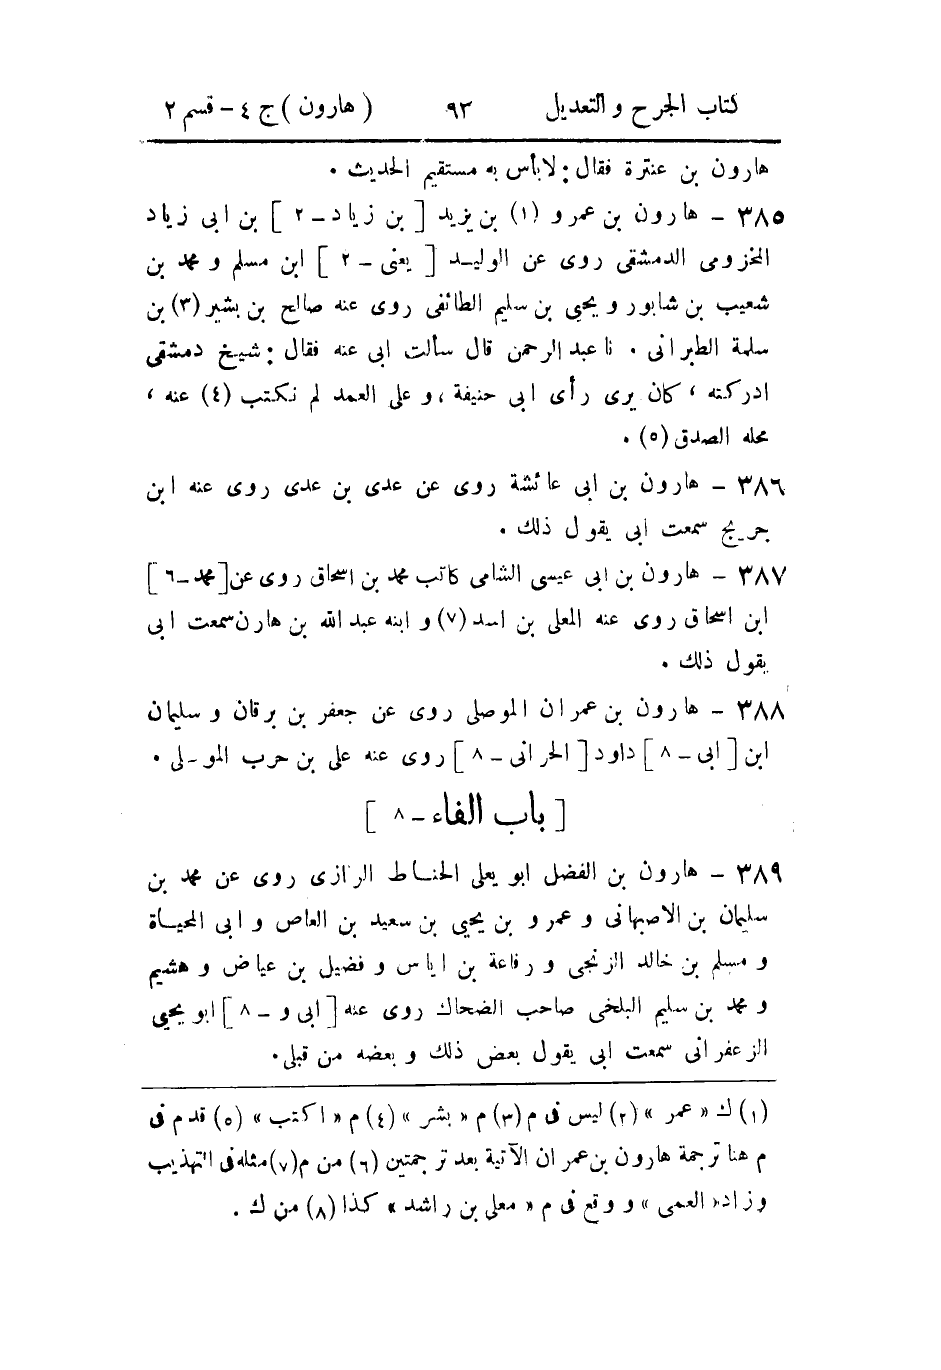 كتاب الجرح والتعديل ٩٢ (هارون) ج ٤ - قسم ٢
هارون بن عنترة فقال: لا بأس به مستقيم الحديث .
٣٨٥ - هارون بن عمرو (١) بن يزيد [بن زياد - ٢] بن ابى زياد
المخزومى الدمشقى روى عن الوليد [يعنى - ٢] ابن مسلم و محمد بن
شعيب بن شابور و يحيى بن سليم الطائفى روى عنه صالح بن بشير (٣) بن
سلمة الطبرانى . نا عبد الرحمن قال سألت ابى عنه فقال: شيخ دمشقى
ادركته ، كان يرى رأى ابى حنيفة ، و على العمد لم نكتب (٤) عنه ،
محله الصدق (٥) .
٣٨٦ - هارون بن ابى عائشة روى عن عدى بن عدى روى عنه ابن
جريج سمعت ابى يقول ذلك .
٣٨٧ - هارون بن ابى عيسى الشامى كاتب محمد بن اسحاق روى عن [محمد - ٦]
ابن اسحاق روى عنه المعلى بن اسد (٧) و ابنه عبد الله بن هارن سمعت ابى
يقول ذلك .
٣٨٨ - هارون بن عمران الموصلى روى عن جعفر بن برقان و سليمان
ابن [ابى - ٨] داود [الحرانى - ٨] روى عنه على بن حرب الموصلى .
[باب الفاء - ٨]
٣٨٩ - هارون بن الفضل ابو يعلى الحناط الرازى روى عن محمد بن
سليمان بن الاصبهانى و عمرو بن يحيى بن سعيد بن العاص و ابى المحياة
و مسلم بن خالد الزنجى و رفاعة بن اياس و فضيل بن عياض و هشيم
و محمد بن سليم البلخى صاحب الضحاك روى عنه [ابى و - ٨] ابو يحيى
الزعفرانى سمعت ابى يقول بعض ذلك و بعضه من قبلى .
(١) ك « عمر » (٢) ليس فى م (٣) م « بشر » (٤) م « اكتب » (٥) قدم فى
م هنا ترجمة هارون بن عمران الآتية بعد ترجمتين (٦) من م (٧) مثله فى التهذيب
وزاد « العمى » و وقع فى م « معلى بن راشد » كذا (٨) من ك .